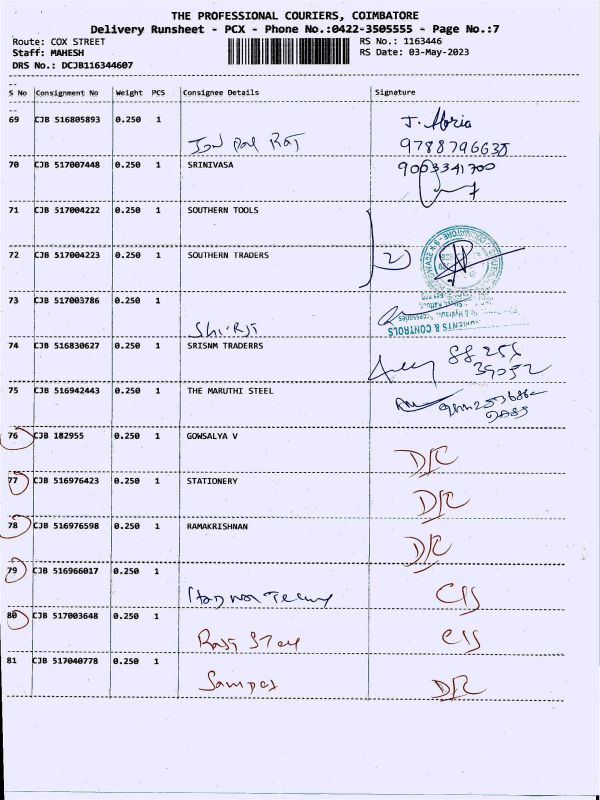 THE PROFESSIONAL COURIERS, COIMBATORE
Delivery Runsheet - PCX - Phone No.:0422-3505555 - Page No.:7
Route: COX STREET RS No.: 1163446
Staff: MAHESH RS Date: 03-May-2023
DRS No.: DCJB116344607
S No Consignment No Weight PCS Consignee Details Signature
69 CJB 516805893 0.250 1 9788796635
70 CJB 517007448 0.250 1 SRINIVASA 9003341700
71 CJB 517004222 0.250 1 SOUTHERN TOOLS
72 CJB 517004223 0.250 1 SOUTHERN TRADERS 2)
73 CJB 517003786 0.250 1
74 CJB 516830627 0.250 1 SRISNM TRADERRS
75 CJB 516942443 0.250 1 THE MARUTHI STEEL
76 CJB 182955 0.250 1 GOWSALYA V D/C
77 CJB 516976423 0.250 1 STATIONERY D/C
78 CJB 516976598 0.250 1 RAMAKRISHNAN D/C
79 CJB 516966017 0.250 1
80 CJB 517003648 0.250 1
81 CJB 517040778 0.250 1 D/C